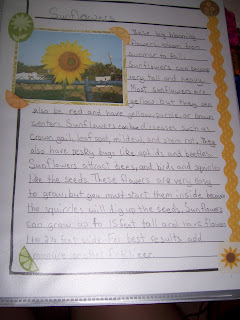 Sunflowers
These big blooming
flowers bloom from
summer to fall.
Sunflowers can become
very tall and heavy.
Most sunflowers are
yellow but they can
also be red and have yellow, purple, or brown
centers. Sunflowers can get diseases such as
crown gall, leaf spot, mildew, and stem rot. They
also have pesky bugs like aphids and beetles.
Sunflowers attract bees, and birds and squirrles
like the seeds. These flowers are very easy
to grow, but you must start them inside because
the squirrles will dig up the seeds. Sunflowers
can grow up to 15 feet tall and have flowers
1 to 2½ feet For best results add
manure or other fertilizer.